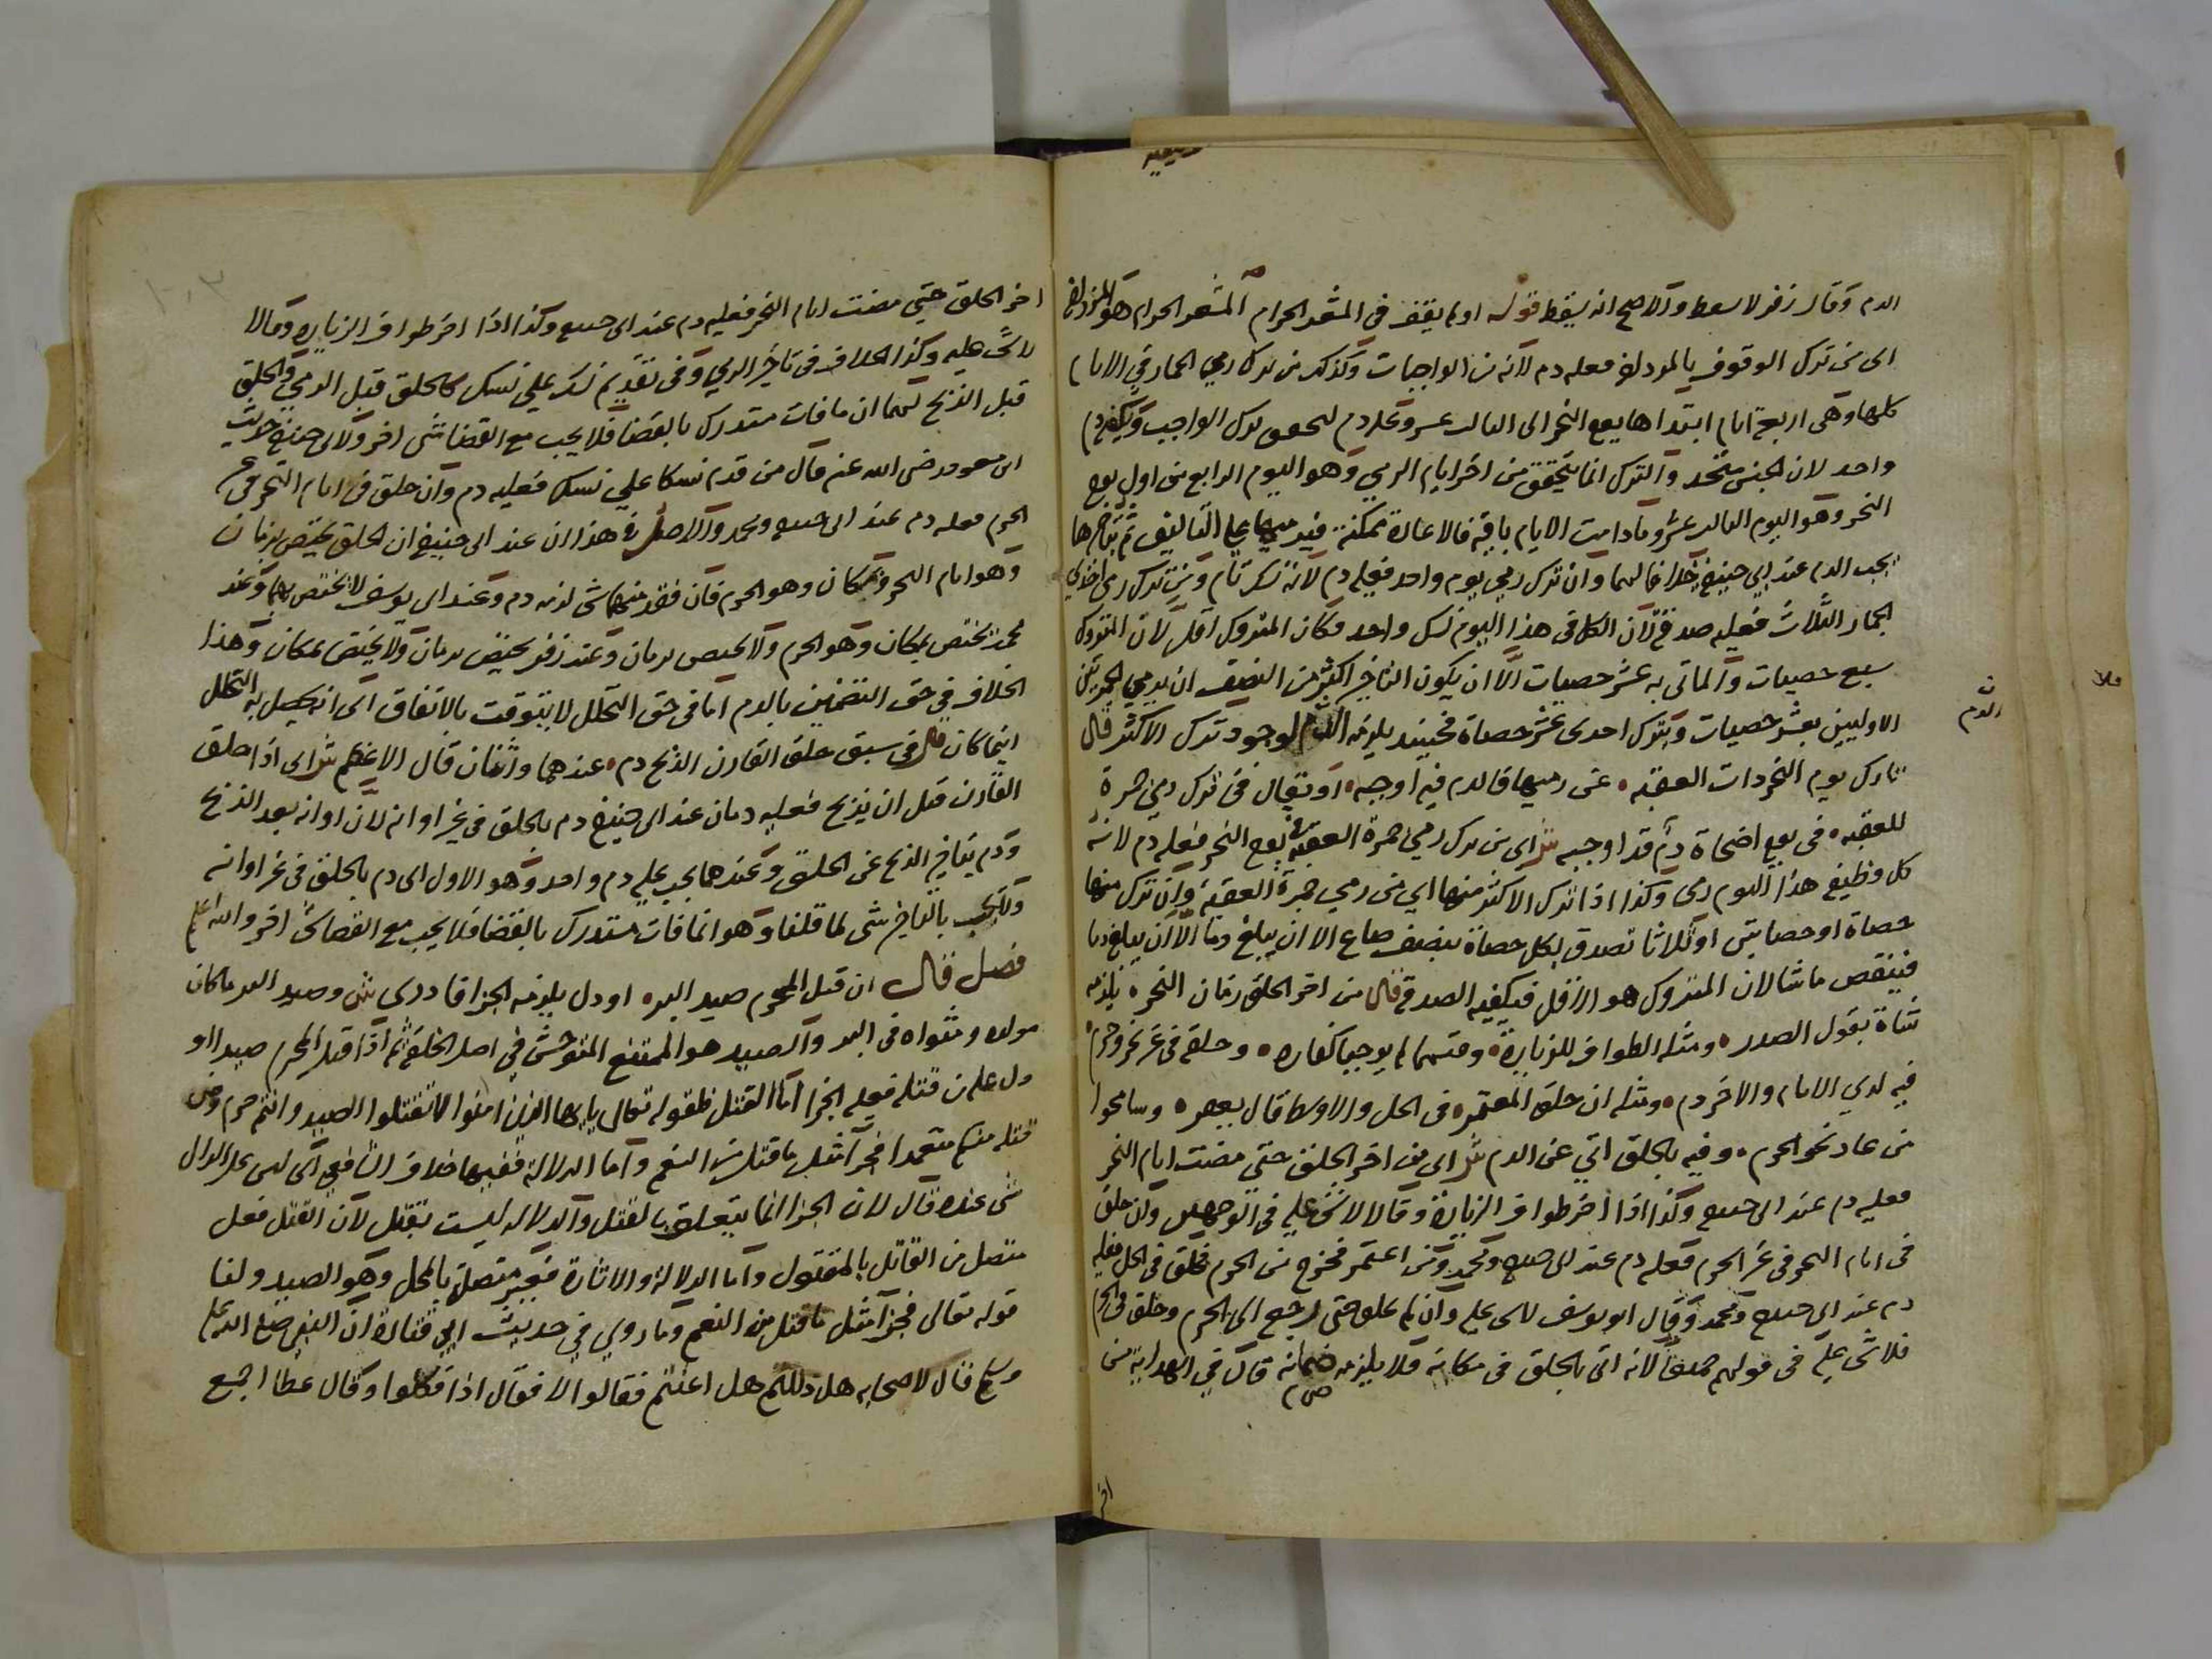 الدم وقال زفر لا يسقط والاصح انه يسقط قوله او ما يقف في المشعر الحرام المشعر الحرام هو المزدلفة
اى من ترك الوقوف بالمزدلفة فعليه دم لانه من الواجبات وكذلك من ترك رمي الجمار في الايام
كلها وهى اربعة ايام ابتداها يوم النحر الى الثالث عشر وعليه دم لتحقق ترك الواجب ويكفيه دم
واحد لان الجنس متحد والترك انما يتحقق من اخر ايام الرمي وهو اليوم الرابع من اول يوم
النحر وهو اليوم الثالث عشر وما دامت الايام باقية فالاعادة ممكنة فيرميها على التاليف ثم بتاخيرها
يجب الدم عند ابي حنيفة خلافا لهما وان ترك رمي يوم واحد فعليه دم لانه نسك تام ومن ترك رمى احدى
الجمار الثلاث فعليه صدقة لان الكل في هذا اليوم نسك واحد فكان المتروك اقل لان المتروك
سبع حصيات والماتى به عشر حصيات الا ان يكون التاخير اكثر من النصف ان يرمي الجمرتين
الاوليين بعشر حصيات ويترك احدى عشر حصاة فحينئذ يلزمه الدم لوجود ترك الاكثر قال
تارك يوم النحر ذات العقبه عن رميها فالدم فيه اوجبه او يقال في ترك رمي جمرة
للعقبه في يوم اضحاة دم قد اوجبه ش اى من ترك رمي جمرة العقبة يوم النحر فعليه دم لانه
كل وظيفة هذا اليوم رمى وكذا اذا ترك الاكثر منها اي من رمي جمرة العقبة وان ترك منها
حصاة او حصاتين او ثلاثا تصدق لكل حصاة بنصف صاع الا ان يبلغ دما الا ان يبلغ دما
فينقص ماشا لان المتروك هو الاقل فيكفيه الصدقة قال من اخر الحلق زمان النحره يلزمه
شاة بقول الصدر ومثله الطواف للزيارة وقسما لم يوجبا كفاره وحلقه في غر نحر وحرم
فيه لدي الامام والاخر دم ومثله ان حلق المعتمر في الحل والاوسط قال يعصره وسامحوا
من عاد نحو الحرم وفيه بالحلق اتي عن الدم ش اى من اخر الحلق حتى مضت ايام النحر
فعليه دم عند ابى حنيفة وكذا اذا اخر طواف الزيارة وقالا لا شئ عليه في الوجهين وان حلق
فى ايام النحر في غير الحرم فعليه دم عند ابى حنيفة ومحمد ومن اعتمر فخرج من الحرم فحلق في الحل فعليه
دم عند ابى حنيفة ومحمد وقال ابو يوسف لا شى عليه وان لم يحلق حتى رجع الى الحرم وحلق في الحرم
فلا شى عليه فى قولهم جميعا لانه اتى بالحلق فى مكانه فلا يلزمه ضمانه قال في الهداية من
الدم
اخر
اخر الحلق حتى مضت ايام النحر فعليه دم عند ابى حنيفة وكذا اذا اخر طواف الزيارة وقالا
لا شئ عليه وكذا الخلاف فى تاخير الرمي وفى تقديم نسك على نسك كالحلق قبل الرمي والحلق
قبل الذبح لهما ان ما فات متدرك بالقضا فلا يجب مع القضا شى اخر ولابى حنيفة حديث
ابن مسعود رضى الله عنه قال من قدم نسكا على نسك فعليه دم وان حلق فى ايام النحر فى غير
الحرم فعليه دم عند ابى حنيفة ومحمد والاصل فى هذا ان عند ابى حنيفة ان الحلق يختص بزمان
وهو ايام النحر وبمكان وهو الحرم فان فقد منهما شى لزمه دم وعند ابى يوسف لا يختص بهما وعند
محمد يختص بمكان وهو الحرم ولا يختص بزمان وعند زفر يختص بزمان ولا يختص بمكان وهذا
الخلاف في حق التضمين بالدم اما في حق التحلل لا يتوقت بالاتفاق اى انه يحصل به التحلل
اينما كان قال في سبق حلق القارن الذبح دم عندهما واثنان قال الاعظم ش اى اذا حلق
القارن قبل ان يذبح فعليه دمان عند ابى حنيفة دم بالحلق في غير اوانه لان اوانه بعد الذبح
ودم بتاخير الذبح عن الحلق وعندهما يجب عليه دم واحد وهو الاول اى دم بالحلق في غير اوانه
ولا يجب بالتاخير شى لما قلنا وهو انما فات مستدرك بالقضا فلا يجب مع القضا شئ اخر والله اعلم
فصل قال ان قتل المحرم صيد البره او دل يلزمه الجزا قادري ش وصيد البر ما كان
مولده ومثواه فى البر والصيد هو الممتنع المتوحش في اصل الخلقة ثم اذا قتل المحرم صيدا او
دل عليه من قتله فعليه الجزا اما القتل فلقوله تعالى يا ايها الذين امنوا لا تقتلوا الصيد وانتم حرم ومن
قتله منكم متعمدا فجزآ مثل ما قتل من النعم واما الدلالة ففيها خلاف الشافعي اى ليس على الدال
شى عنده قال لان الجزا انما يتعلق بالقتل والدلاله ليست بقتل لان القتل فعل
متصل من القاتل بالمقتول واما الدلالة والاشارة فغير متصلة بالمحل وهو الصيد ولنا
قوله تعالى فجزآ مثل ما قتل من النعم وما روي في حديث ابي قتادة ان النبي صلى الله عليه
وسلم قال لاصحابه هل دللتم هل اعنتم فقالوا لا فقال اذا فكلوا وقال عطا اجمع